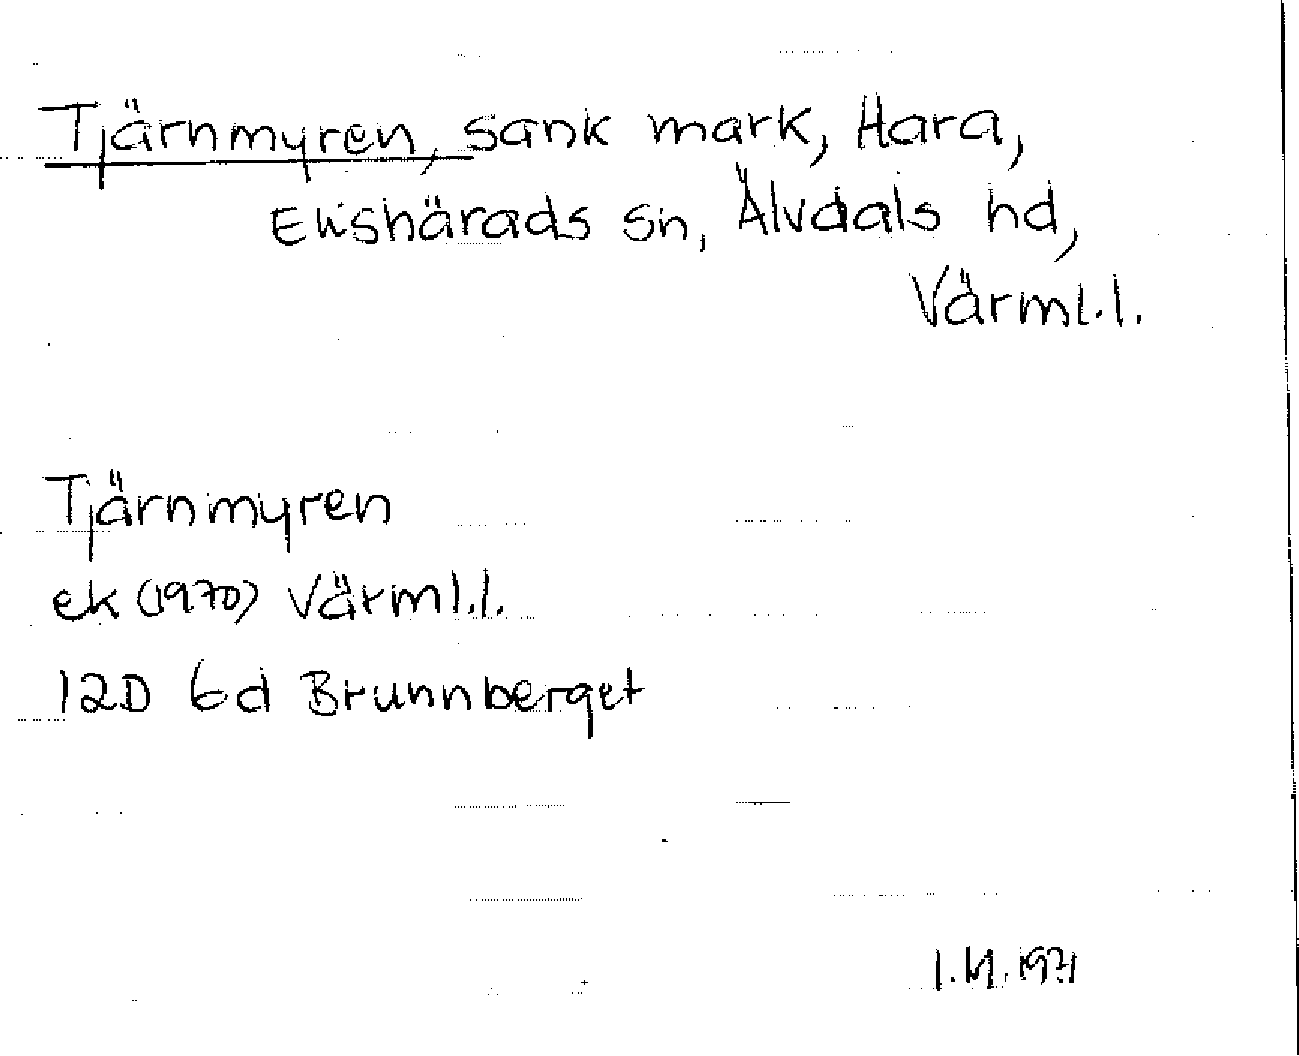 Tjärnmyren, sank mark, Hara,
Ekshärads sn, Älvdals hd,
Värml.l.
Tjärnmyren
ek (1970) Värml.l.
12D 6d Brunnberget
I.M. 1971